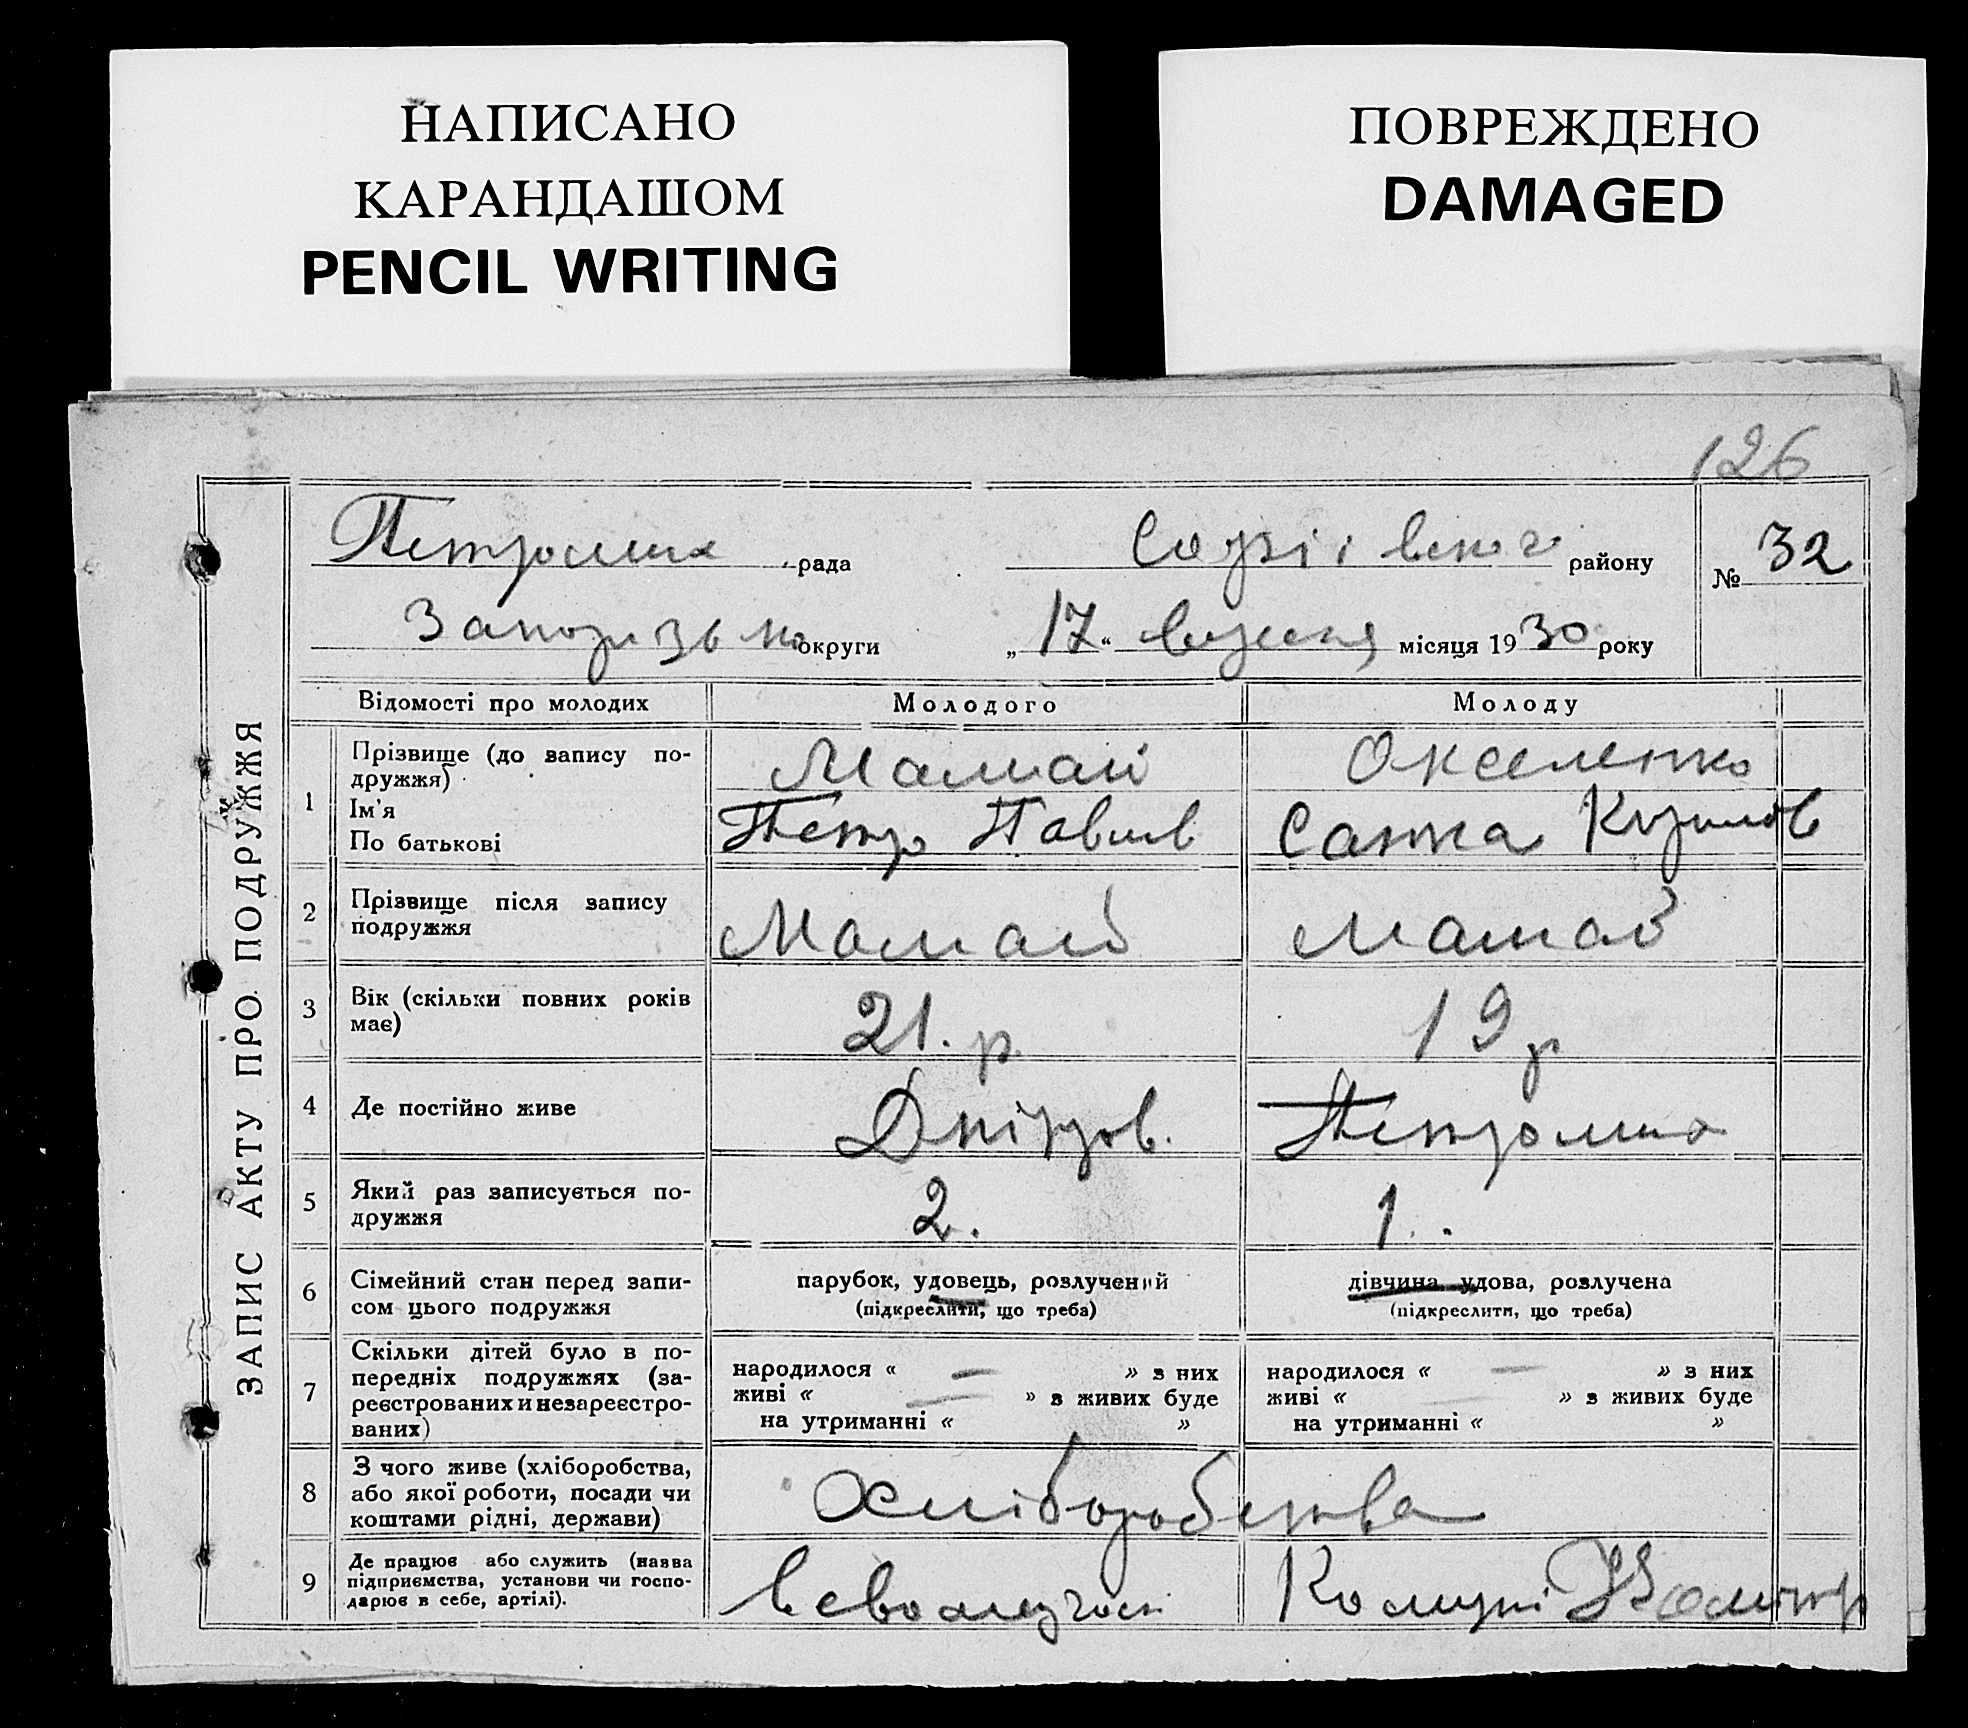 НАПИСАНО
КАРАНДАШОМ
PENCIL WRITING
ПОВРЕЖДЕНО
DAMAGED
126
ЗАПИС АКТУ ПРО ПОДРУЖЖЯ
рада району № 32
округи „17“ вересня місяця 1930 року
Відомості про молодих Молодого Молоду
1 Прізвище (до запису по-
дружжя) Мамай
Ім'я
По батькові Петро Павлів Санка
2 Прізвище після запису
подружжя Мамай Мамай
3 Вік (скільки повних років
має) 21. р. 19 р
4 Де постійно живе
5 Який раз записується по-
дружжя 2. 1.
6 Сімейний стан перед запи-
сом цього подружжя
парубок, удовець, розлучений
(підкреслити, що треба)
дівчина удова, розлучена
(підкреслити, що треба)
7 Скільки дітей було в по-
передніх подружжях (за-
реєстрованих и незареєстро-
ваних)
народилося « — » з них
живі « — » з живих буде
на утриманні « »
народилося « — » з них
живі « — » з живих буде
на утриманні « »
8 З чого живе (хліборобства,
або якої роботи, посади чи
коштами рідні, держави)
Хліборобства
9 Де працює або служить (назва
підприємства, установи чи госпо-
дарює в себе, артілі).